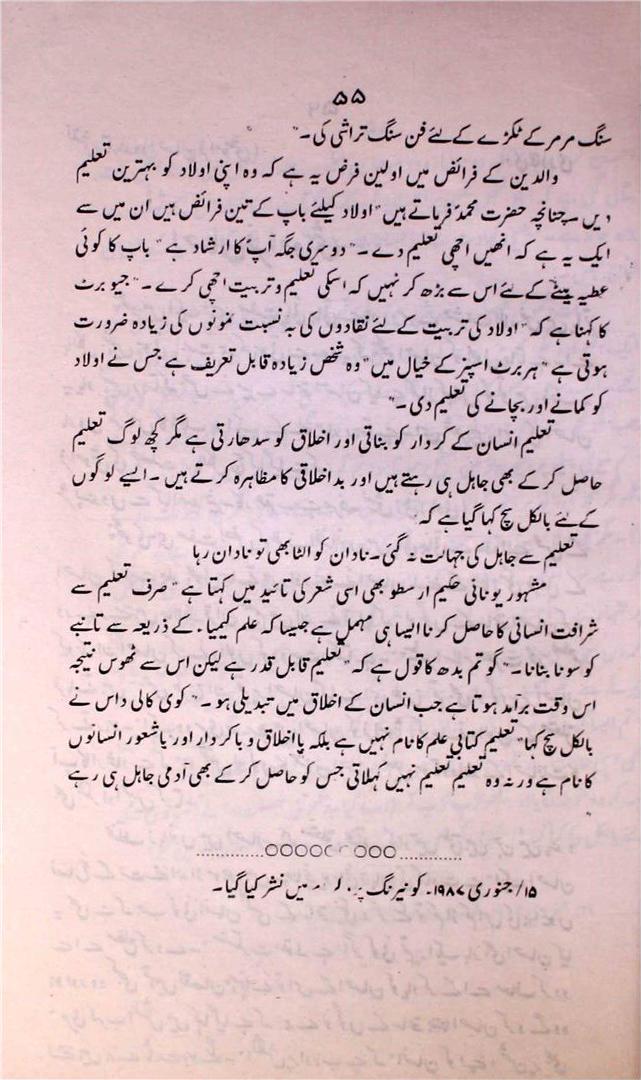 ۵۵
سنگ مرمر کے ٹکڑے کے لئے فن سنگ تراشی کی۔"
والدین کے فرائض میں اولین فرض یہ ہے کہ وہ اپنی اولاد کو بہترین تعلیم
دیں۔ چنانچہ حضرت محمدؐ فرماتے ہیں "اولاد کیلئے باپ کے تین فرائض ہیں ان میں سے
ایک یہ ہے کہ انھیں اچھی تعلیم دے۔" دوسری جگہ آپؐ کا ارشاد ہے "باپ کا کوئی
عطیہ بیٹے کے لئے اس سے بڑھ کر نہیں کہ اسکی تعلیم و تربیت اچھی کرے۔" جیو برٹ
کا کہنا ہے کہ "اولاد کی تربیت کے لئے نقادوں کی بہ نسبت نمونوں کی زیادہ ضرورت
ہوتی ہے" ہربرٹ اسپنز کے خیال میں "وہ شخص زیادہ قابل تعریف ہے جس نے اولاد
کو کمانے اور بچانے کی تعلیم دی۔"
تعلیم انسان کے کردار کو بناتی اور اخلاق کو سدھارتی ہے مگر کچھ لوگ تعلیم
حاصل کر کے بھی جاہل ہی رہتے ہیں اور بد اخلاقی کا مظاہرہ کرتے ہیں۔ ایسے لوگوں
کے لئے بالکل سچ کہا گیا ہے کہ
تعلیم سے جاہل کی جہالت نہ گئی۔ نادان کو الٹا بھی تو نادان رہا
مشہور یونانی حکیم ارسطو بھی اسی شعر کی تائید میں کہتا ہے "صرف تعلیم سے
شرافت انسانی کا حاصل کرنا ایسا ہی مہمل ہے جیسا کہ علم کیمیا۔ کے ذریعہ سے تانبے
کو سونا بنانا۔" گوتم بدھ کا قول ہے کہ "تعلیم قابل قدر ہے لیکن اس سے ٹھوس نتیجہ
اس وقت برآمد ہوتا ہے جب انسان کے اخلاق میں تبدیلی ہو۔" کوی کالی داس نے
بالکل سچ کہا "تعلیم کتابی علم کا نام نہیں ہے بلکہ بااخلاق و باکردار اور باشعور انسانوں
کا نام ہے ورنہ وہ تعلیم تعلیم نہیں کہلاتی جس کو حاصل کر کے بھی آدمی جاہل ہی رہے
۱۵/ جنوری ۱۹۸۷۔ کو نیرنگ میں نشر کیا گیا۔